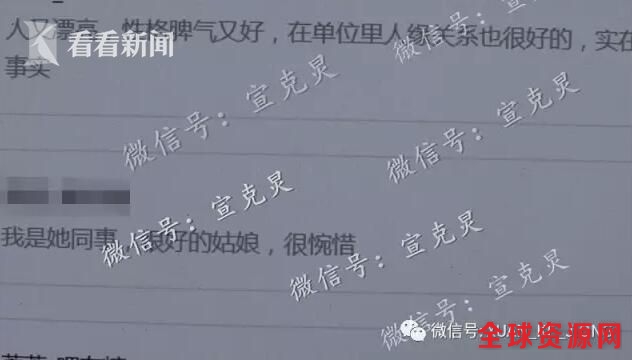 人又漂亮，性格脾气又好，在单位里人缘关系也很好的，实在
事实
看看新闻
微信号：宣克炅
微信号：宣克炅
微信号：宣克炅
微信号：宣克炅
我是她同事，很好的姑娘，很惋惜
微信号：宣克炅
微信号：宣克炅
微信号：宣克炅
微信号
全球资源网